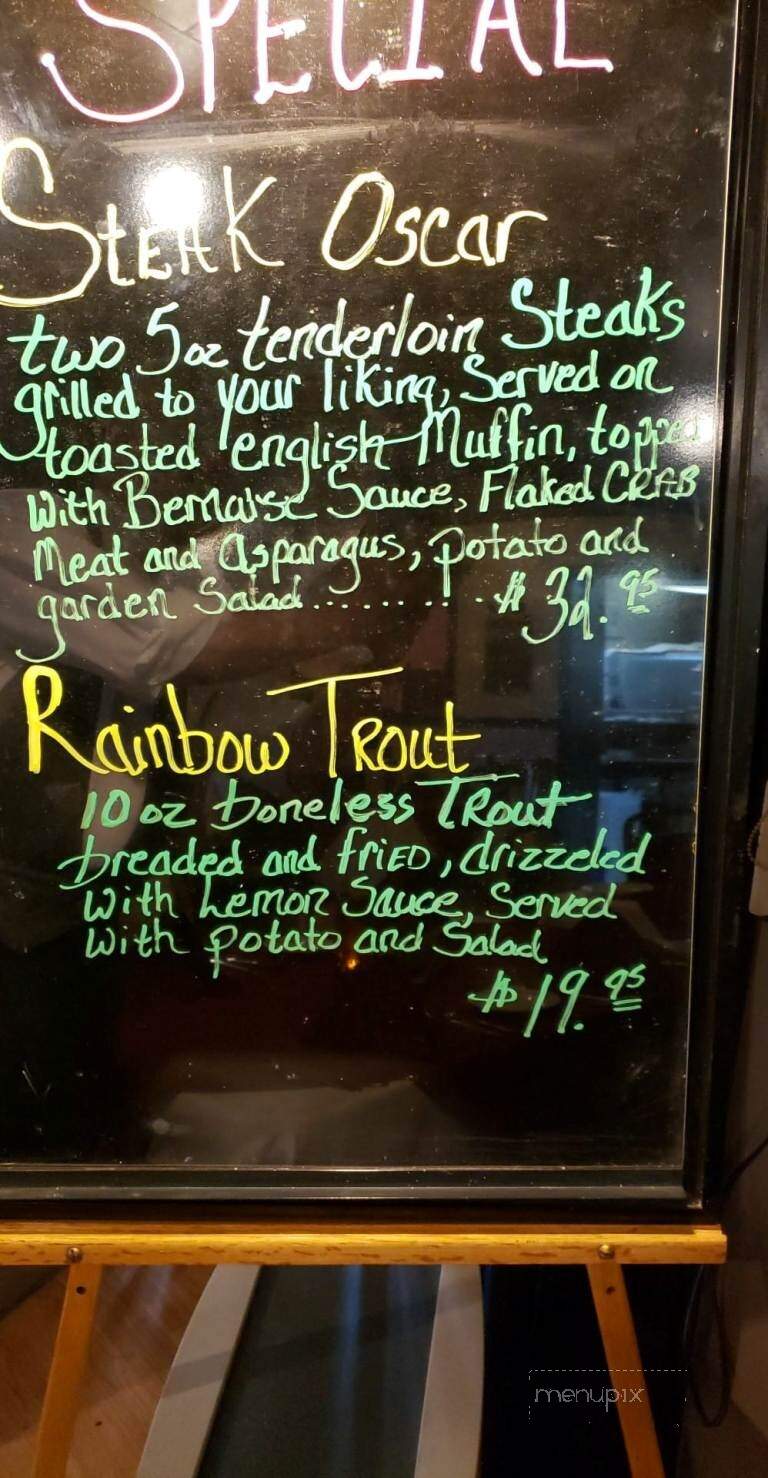 SPECIAL
STEAK Oscar
two 5oz tenderloin Steaks
grilled to your liking, Served on
toasted english Muffin, topped
with Bernaise Sauce, Flaked CRAB
Meat and Asparagus, potato and
garden Salad......... $32.95
Rainbow TROUT
10 oz boneless TROUT
breaded and friED, drizzeled
with Lemon Sauce, Served
with potato and Salad
$19.95
menupix